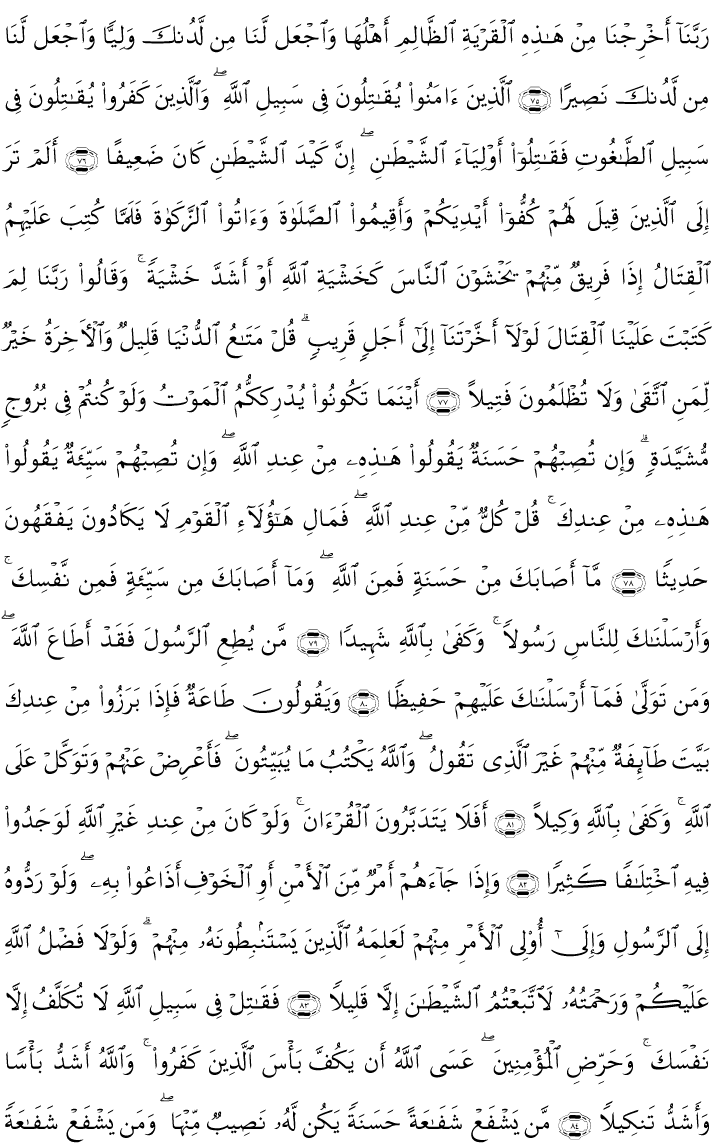 رَبَّنَآ أَخْرِجْنَا مِنْ هَـٰذِهِ ٱلْقَرْيَةِ ٱلظَّالِمِ أَهْلُهَا وَٱجْعَل لَّنَا مِن لَّدُنكَ وَلِيًّا وَٱجْعَل لَّنَا
مِن لَّدُنكَ نَصِيرًا ٧٥ ٱلَّذِينَ ءَامَنُوا۟ يُقَـٰتِلُونَ فِى سَبِيلِ ٱللَّهِ ۖ وَٱلَّذِينَ كَفَرُوا۟ يُقَـٰتِلُونَ فِى
سَبِيلِ ٱلطَّـٰغُوتِ فَقَـٰتِلُوٓا۟ أَوْلِيَآءَ ٱلشَّيْطَـٰنِ ۖ إِنَّ كَيْدَ ٱلشَّيْطَـٰنِ كَانَ ضَعِيفًا ٧٦ أَلَمْ تَرَ
إِلَى ٱلَّذِينَ قِيلَ لَهُمْ كُفُّوٓا۟ أَيْدِيَكُمْ وَأَقِيمُوا۟ ٱلصَّلَوٰةَ وَءَاتُوا۟ ٱلزَّكَوٰةَ فَلَمَّا كُتِبَ عَلَيْهِمُ
ٱلْقِتَالُ إِذَا فَرِيقٌ مِّنْهُمْ يَخْشَوْنَ ٱلنَّاسَ كَخَشْيَةِ ٱللَّهِ أَوْ أَشَدَّ خَشْيَةً ۚ وَقَالُوا۟ رَبَّنَا لِمَ
كَتَبْتَ عَلَيْنَا ٱلْقِتَالَ لَوْلَآ أَخَّرْتَنَآ إِلَىٰٓ أَجَلٍ قَرِيبٍ ۗ قُلْ مَتَـٰعُ ٱلدُّنْيَا قَلِيلٌ وَٱلْـَٔاخِرَةُ خَيْرٌ
لِّمَنِ ٱتَّقَىٰ وَلَا تُظْلَمُونَ فَتِيلاً ٧٧ أَيْنَمَا تَكُونُوا۟ يُدْرِككُّمُ ٱلْمَوْتُ وَلَوْ كُنتُمْ فِى بُرُوجٍ
مُّشَيَّدَةٍ ۗ وَإِن تُصِبْهُمْ حَسَنَةٌ يَقُولُوا۟ هَـٰذِهِۦ مِنْ عِندِ ٱللَّهِ ۖ وَإِن تُصِبْهُمْ سَيِّئَةٌ يَقُولُوا۟
هَـٰذِهِۦ مِنْ عِندِكَ ۚ قُلْ كُلٌّ مِّنْ عِندِ ٱللَّهِ ۖ فَمَالِ هَـٰٓؤُلَآءِ ٱلْقَوْمِ لَا يَكَادُونَ يَفْقَهُونَ
حَدِيثًا ٧٨ مَّآ أَصَابَكَ مِنْ حَسَنَةٍ فَمِنَ ٱللَّهِ ۖ وَمَآ أَصَابَكَ مِن سَيِّئَةٍ فَمِن نَّفْسِكَ ۚ
وَأَرْسَلْنَـٰكَ لِلنَّاسِ رَسُولاً ۚ وَكَفَىٰ بِٱللَّهِ شَهِيدًا ٧٩ مَّن يُطِعِ ٱلرَّسُولَ فَقَدْ أَطَاعَ ٱللَّهَ ۖ
وَمَن تَوَلَّىٰ فَمَآ أَرْسَلْنَـٰكَ عَلَيْهِمْ حَفِيظًا ٨٠ وَيَقُولُونَ طَاعَةٌ فَإِذَا بَرَزُوا۟ مِنْ عِندِكَ
بَيَّتَ طَآئِفَةٌ مِّنْهُمْ غَيْرَ ٱلَّذِى تَقُولُ ۖ وَٱللَّهُ يَكْتُبُ مَا يُبَيِّتُونَ ۖ فَأَعْرِضْ عَنْهُمْ وَتَوَكَّلْ عَلَى
ٱللَّهِ ۚ وَكَفَىٰ بِٱللَّهِ وَكِيلاً ٨١ أَفَلَا يَتَدَبَّرُونَ ٱلْقُرْءَانَ ۚ وَلَوْ كَانَ مِنْ عِندِ غَيْرِ ٱللَّهِ لَوَجَدُوا۟
فِيهِ ٱخْتِلَـٰفًا كَثِيرًا ٨٢ وَإِذَا جَآءَهُمْ أَمْرٌ مِّنَ ٱلْأَمْنِ أَوِ ٱلْخَوْفِ أَذَاعُوا۟ بِهِۦ ۖ وَلَوْ رَدُّوهُ
إِلَى ٱلرَّسُولِ وَإِلَىٰٓ أُو۟لِى ٱلْأَمْرِ مِنْهُمْ لَعَلِمَهُ ٱلَّذِينَ يَسْتَنۢبِطُونَهُۥ مِنْهُمْ ۗ وَلَوْلَا فَضْلُ ٱللَّهِ
عَلَيْكُمْ وَرَحْمَتُهُۥ لَٱتَّبَعْتُمُ ٱلشَّيْطَـٰنَ إِلَّا قَلِيلاً ٨٣ فَقَـٰتِلْ فِى سَبِيلِ ٱللَّهِ لَا تُكَلَّفُ إِلَّا
نَفْسَكَ ۚ وَحَرِّضِ ٱلْمُؤْمِنِينَ ۖ عَسَى ٱللَّهُ أَن يَكُفَّ بَأْسَ ٱلَّذِينَ كَفَرُوا۟ ۚ وَٱللَّهُ أَشَدُّ بَأْسًا
وَأَشَدُّ تَنكِيلاً ٨٤ مَّن يَشْفَعْ شَفَـٰعَةً حَسَنَةً يَكُن لَّهُۥ نَصِيبٌ مِّنْهَا ۖ وَمَن يَشْفَعْ شَفَـٰعَةً